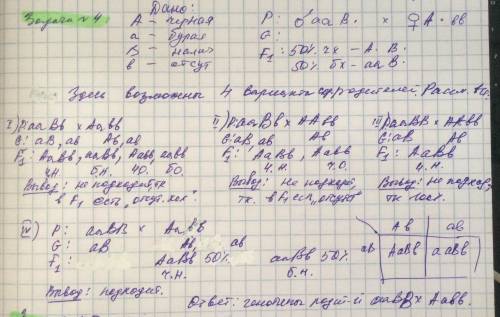 Задача №4
Дано:
А – черная
а – бурая
В – налич
в – отсут
Р: ♂ааВ. × ♀А. вв
G:
F₁: 50% чх – А. В.
50% бх – ааВ
Здесь возможны 4 родителей. Рассм. все
I) РааВв × Аавв
G: аВ, ав Ав, ав
F₁: АаВв, ааВв, Аавв, аавв
ч.н. б.н. ч.о. б.о.
Вывод: не подходит, тк
в F₁ есть „отсут. хох"
II) РааВв × ААвв
G: аВ, ав Ав
F₁: АаВв, Аавв
ч.н. ч.о.
Вывод: не подход,
тк. в F₁ есть „отсутст"
III) РааВВ × ААвв
G: аВ Ав
F₁ АаВв
ч.н.
Вывод: не подход,
тк
IV) Р: ааВВ × Аавв
G: аВ Ав, ав
F₁ АаВв 50% ааВв 50%
ч.н. б.н.
Вывод: подходит.
Ав ав
аВ АаВв ааВв
Ответ: генотипы родит-й ааВВ × Аавв.